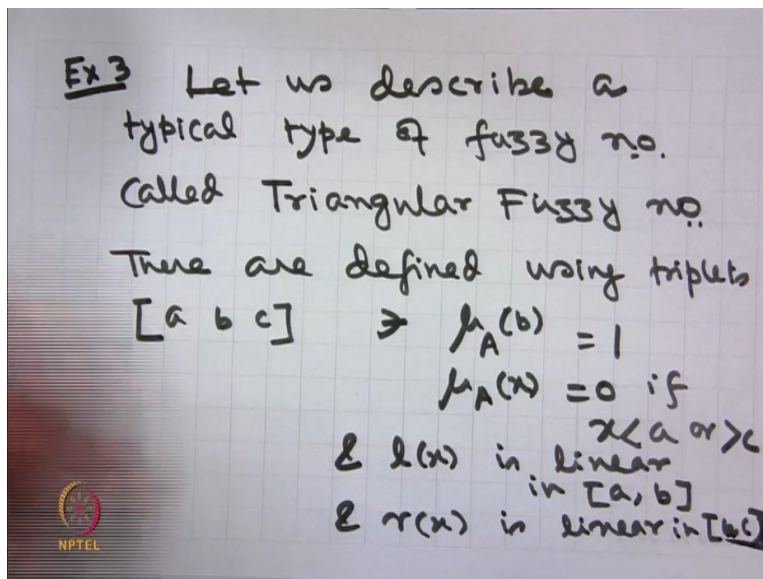 Ex 3 Let us describe a
typical type of fuzzy no.
called Triangular Fuzzy no.
There are defined using triplets
[a b c] ∋ μ_A(b) = 1
μ_A(x) = 0 if
x < a or > c
& l(x) is linear
in [a, b]
& r(x) is linear in [b c]
NPTEL